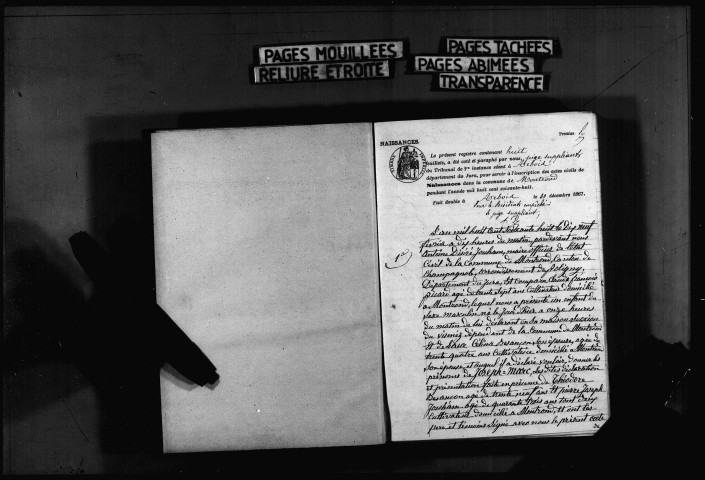 PAGES MOUILLEES
RELIURE ETROITE
PAGES TACHEES
PAGES ABIMEES
TRANSPARENCE
Premier
NAISSANCES
Le présent registre contenant huit
feuillets, a été coté et paraphé par nous, juge suppléant
du Tribunal de 1re instance séant à Arbois
département du Jura, pour servir à l'inscription des actes civils de
Naissances dans la commune de Montrond
pendant l'année mil huit cent soixante-huit.
Fait double à Arbois le 20 décembre 1867.
Pour le Président empêché
le juge suppléant,
1er
L'an mil huit cent soixante huit le dix neuf
février à dix heures du matin, pardevant nous
Antoine Désiré Jouham, maire officier de l'Etat
Civil de la Commune de Montrond, Canton de
Champagnole, arrondissement de Poligny,
Département du Jura, est comparu
Picard agé de trente sept ans Cultivateur domicilié
à Montrond, lequel nous a présenté un enfant du
sexe masculin, né le jour d'hier à onze heures
du matin de lui déclarant en sa maison
dépendant de la Commune de Montrond
et de Célina Besançon son épouse, agée de
trente quatre ans Cultivatrice domiciliée à Montrond
son épouse et auquel il a déclaré vouloir donner les
prénoms de Joseph-Marc, les dites déclaration
et présentation faites en présence de Théodore
Besançon agé de trente neuf ans et Pierre Joseph
Jouham agé de quarante trois ans tous deux
Cultivateurs domiciliés à Montrond, et ont les
père et témoins signé avec nous le présent acte